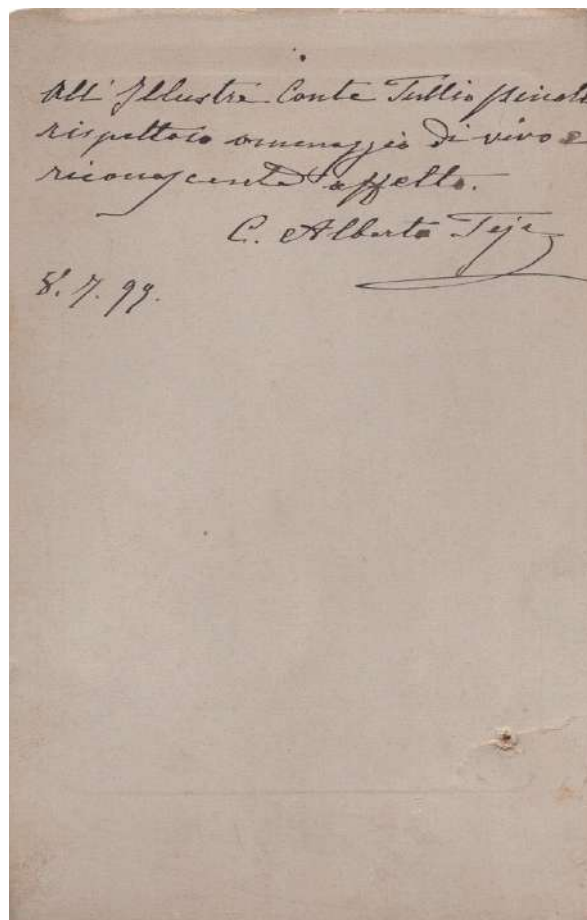 All' Illustre Conte Tullio
rispettoso omaggio di vivo e
riconoscente affetto.
C. Alberto Teja
8. 7. 99.